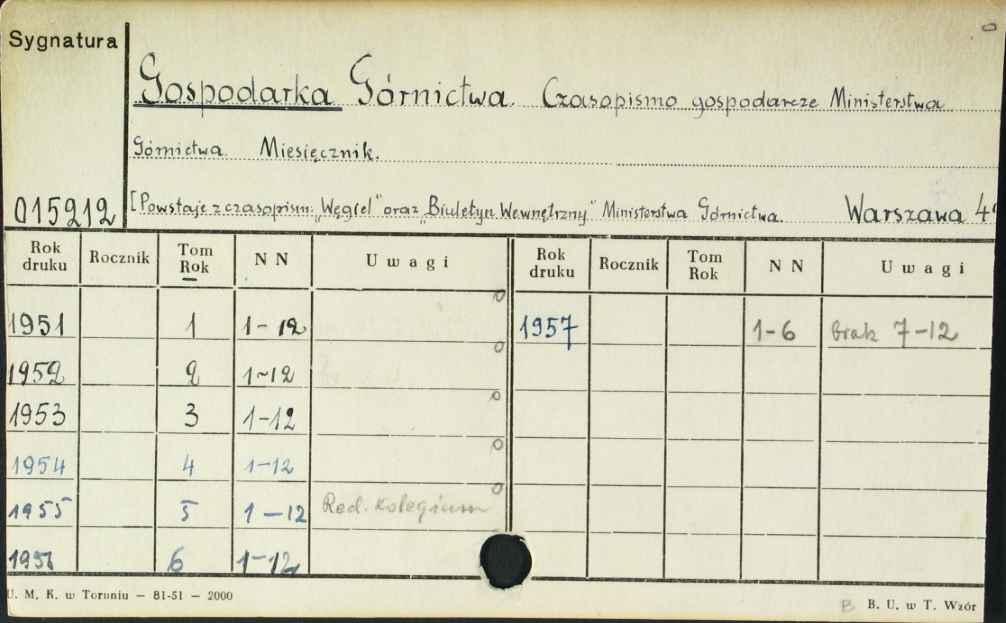 Sygnatura
Gospodarka Górnictwa. Czasopismo gospodarcze Ministerstwa
Górnictwa. Miesięcznik.
015212 [Powstaje z czasopism: „Węgiel" oraz „Biuletyn Wewnętrzny" Ministerstwa Górnictwa. Warszawa 4°
Rok druku Rocznik Tom Rok N N Uwagi Rok druku Rocznik Tom Rok N N Uwagi
1951 1 1-12 1957 1-6 brak 7-12
1952 2 1-12
1953 3 1-12
1954 4 1-12
1955 5 1-12 Red. Kolegium
1956 6 1-12
U. M. K. w Toruniu — 81-51 — 2000 B B. U. w T. Wzór